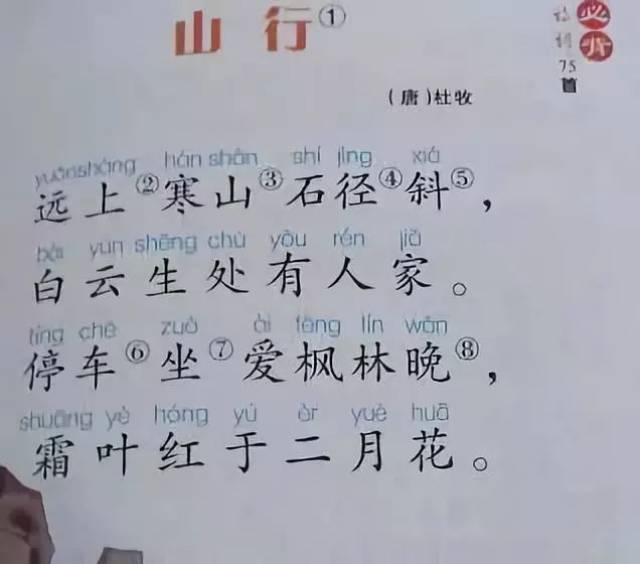 山行①
必背
诗词
75
首
(唐)杜牧
yuǎn shàng hán shān shí jìng xiá
远上②寒山③石径④斜⑤，
bái yún shēng chù yǒu rén jiā
白云生处有人家。
tíng chē zuò ài fēng lín wǎn
停车⑥坐⑦爱枫林晚⑧，
shuāng yè hóng yú èr yuè huā
霜叶红于二月花。